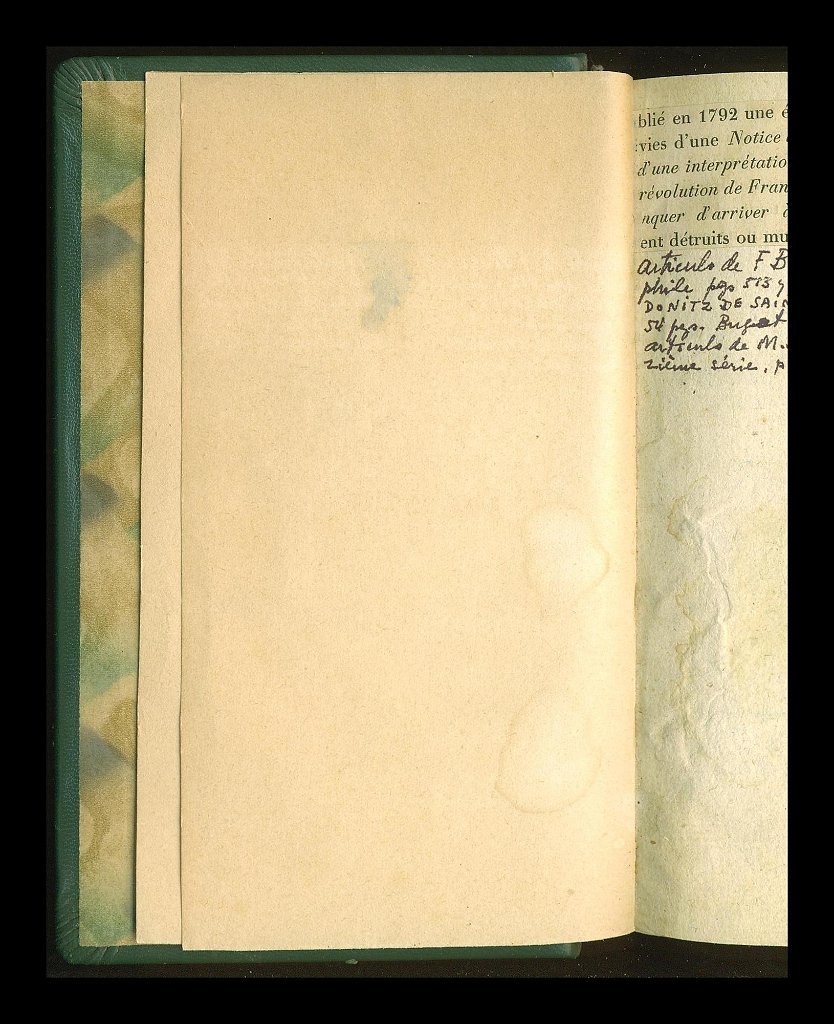 blié en 1792 une é
vies d'une Notice
d'une interprétatio
révolution de Fran
nquer d'arriver à
ent détruits ou mu
articulo de F B
phile pgs 513 y
DONITZ DE SAIN
54 pgs. Bug
articulo de M.
zième série, p